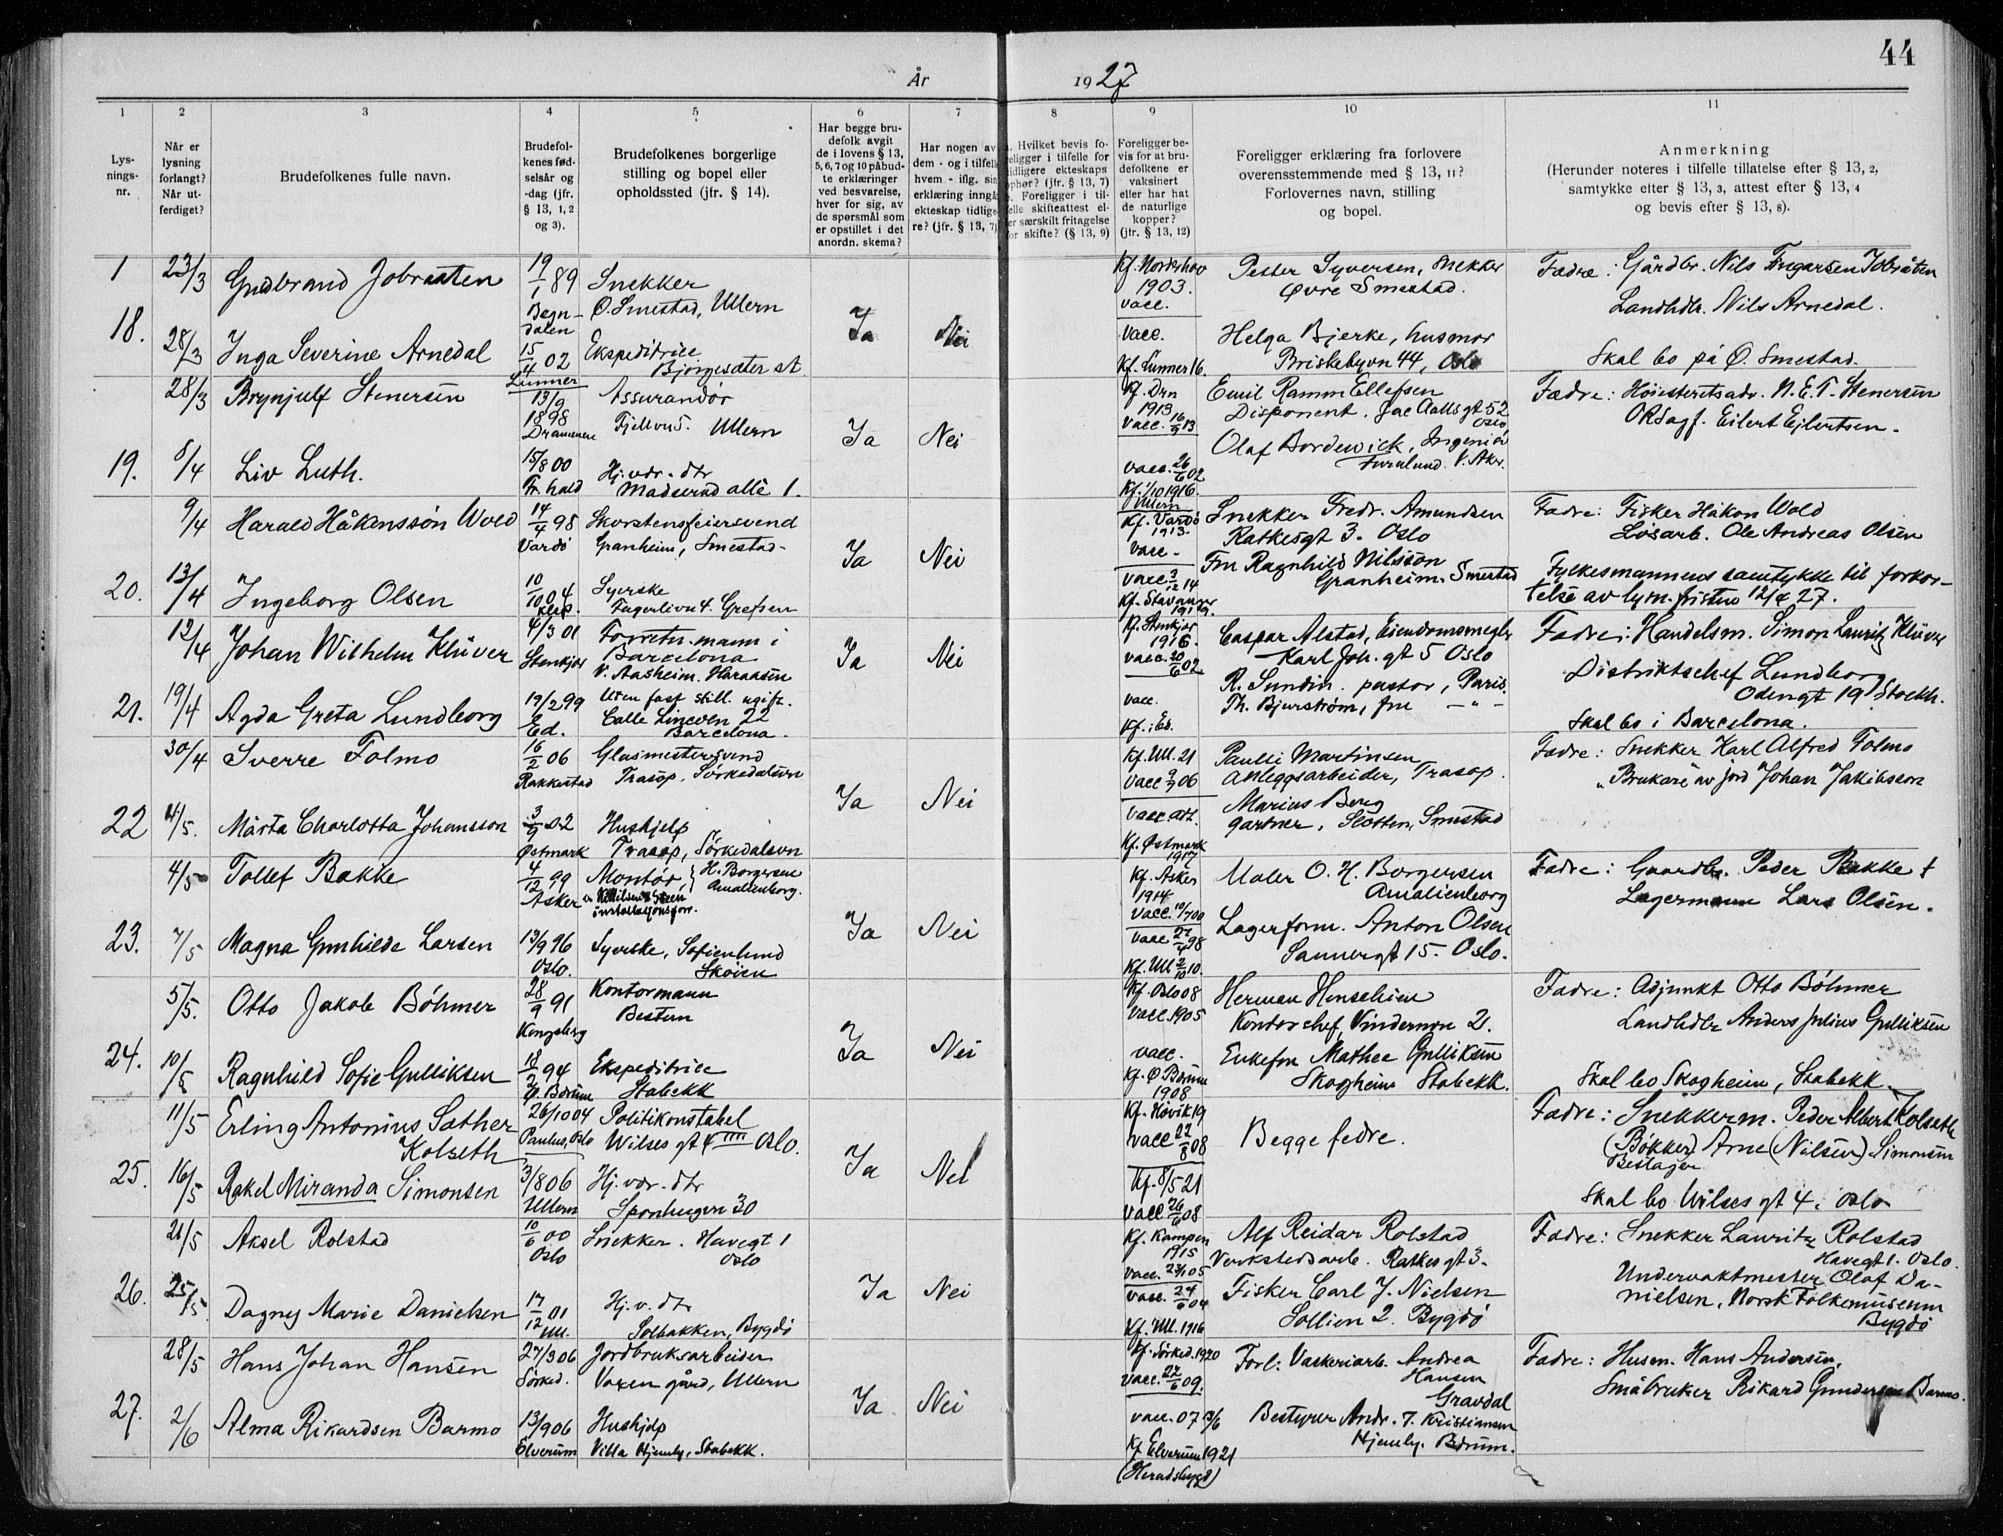 44
År 1927
1 2 3 4 5 6 7 8 9 10 11
Lysningsnr.
Når er lysning forlangt? Når utferdiget?
Brudefolkenes fulle navn.
Brudefolkenes fødselsår og -dag (jfr. § 13, 1, 2 og 3).
Brudefolkenes borgerlige stilling og bopel eller opholdssted (jfr. § 14).
Har begge brudefolk avgit de i lovens § 13, 5, 6, 7 og 10 påbudte erklæringer ved besvarelse, hver for sig, av de spørsmål som er opstillet i det anordn. skema?
Har nogen av dem - og i tilfelle hvem - iflg. sin erklæring inngå ekteskap tidligere? (jfr. § 13, 7)
Hvilket bevis foreligger i tilfelle for tidligere ekteskaps ophør? (jfr. § 13, 7) Foreligger i tilfelle skifteattest eller særskilt fritagelse for skifte? (§ 13, 9)
Foreligger bevis for at brudefolkene er vaksinert eller har hat de naturlige kopper? (jfr. § 13, 12)
Foreligger erklæring fra forlovere overensstemmende med § 13, 11? Forlovernes navn, stilling og bopel.
Anmerkning
(Herunder noteres i tilfelle tillatelse efter § 13, 2, samtykke efter § 13, 3, attest efter § 13, 4 og bevis efter § 13, 8).
1 23/3 Gudbrand Jobraaten 19/1 89 Snekker Kf. Norderhov 1903. vacc. Petter Syversen, snekker Fædre: Gårdbr. Nils Ingarsen Jobråten
Begndalen Ø. Smestad, Ullern Øvre Smestad. Landhdlr. Nils Arnedal.
18. 28/3 Inga Severine Arnedal 15/4 02 Lunner Ekspeditrice Bjørgesæter st. Ja Nei vacc. Kf. Lunner 16. Helga Bjerke, husmor Briskebyvn 44, Oslo Skal bo på Ø. Smestad.
28/3 Brynjulf Stenersen 13/9 1898 Drammen Assurandør Fjellvn 5. Ullern Kf. Drn 1913 vacc. 16/9 13 Emil Ramm Ellefsen Disponent. Jac Aalls gt 52 Oslo Fædre: Høiesteretsadv. N. E. T. Stenersen
19. 5/4 Liv Luth. 15/8 00 Fr. hald Hj. vær. dtr Madserud allé 1. Ja Nei vacc. 26/6 02 Kf. 1/10 1916. Ullern Olaf Bordewick, Ingeniør Furulund. V. Aker. ORsagf. Eilert Eilertsen.
9/4 Harald Håkenssøn Wold 14/4 98 Vardø Skorstensfeiersvend Granheim, Smestad- Kf. Vardø 1913. vacc. Snekker Fredr. Amundsen Ratkesgt 3. Oslo Fædre: Fisker Håkon Wold
Løsarb. Ole Andreas Olsen
20. 13/4 Ingeborg Olsen 10/10 04 Klep. Syerske Fagerlivn 4. Grefsen Ja Nei vacc 3/12 14 Kf. Stavanger 1919. Fru Ragnhild Nilsson Granheim. Smestad Fylkesmannens samtykke til forkortelse av lysn. fristen 12/4 27.
12/4 Johan Wilhelm Klüver 4/3 01 Stenkjær Forretn. mann i Barcelona V. Aasheim. Haraasen Kf. Stenkjær 1916. vacc. 20/6 02 Caspar Alstad, Eiendomsmegler Karl Joh. gt 5 Oslo Fædre: Handelsm. Simon Lauritz Klüver
21. 19/4 Agda Greta Lundborg 19/2 99 Ed. Uten fast still. ugift. Calle Lineven 22 Barcelona. Ja Nei vacc. Kf. i Ed. R. Sundin. pastor, Paris. Th. Bjurström, fru - " - Distriktschef Lundborg Odengt 19 Stockh. Skal bo i Barcelona.
30/4 Sverre Folmo 16/2 06 Rakkestad Glasmestersvend Trasop, Sørkedalsvn Kf. Ull. 21 vacc 9/7 06 Paulli Martinsen anleggsarbeider, Trasop. Fædre: Snekker Karl Alfred Folmo
22 4/5. Märta Charlotta Johansson 3/9 02 Østmark Hushjelp Trasop, Sørkedalsvn Ja Nei vacc att. Kf. Østmark 1917 Marius Berg gartner, Slotten, Smestad "Brukare" av jord Johan Jakobsson
4/5 Tollef Bakke 4/12 99 Asker Montør, H. Borgersen Amalienborg. installasjonsforr. Kf. Asker 1914 vacc. 10/7 00 Maler O. H. Borgersen Amalienborg Fædre: Gaardbr. Peder Bakke †
23. 7/5 Magna Gunhilde Larsen 13/9 96 Oslo. Syerske, Sofienlund Skøien Ja Nei vacc. 27/4 98 Kf. Ull 2/10 10. Lagerform. Anton Olsen Sannergt 15. Oslo. Lagermann Lars Olsen.
5/5. Otto Jakob Böhmer 28/9 91 Kongsberg Kontormann Bestum Kf. Oslo 08 vacc. 1905 Herman Henschien Kontorchef, Vindernvn 21. Fædre: Adjunkt Otto Böhmer
24. 10/5 Ragnhild Sofie Gulliksen 18/2 94 Ø. Bærum Ekspeditrice Stabekk Ja Nei vacc. Kf. Ø Bærum 1908 Enkefru Mathea Gulliksen Skogheim Stabekk. Landhdlr Anders Julius Gulliksen
Skal bo Skogheim, Stabekk
11/5 Erling Antonius Sæther Kolseth 26/10 04 Paulus, Oslo Politikonstabel Wilses gt 4 IIII Oslo. Kf. Høvik 19 vacc 22/8 08 Begge fedre. Fædre: Snekkerm. Peder Albert Kolseth
25. 16/5 Rakel Miranda Simonsen 3/8 06 Ullern Hj. vær. dtr Sponhugvn 30 Ja Nei Kf. 8/5 21 vacc 26/6 08 (Bøkker) Arne (Nilsen) Simonsen Beslager
Skal bo Wilses gt 4. Oslo
21/5 Aksel Rolstad 10/6 00 Oslo Snekker. Havegt 1 Oslo Kf. Kampen 1915 vacc. 23/1 05 Alf Reidar Rolstad Verkstedsarb. Ratkes gt 3. Fædre: Snekker Lauritz Rolstad Havegt 1. Oslo.
26. 25/5 Dagny Marie Danielsen 17/12 01 Ull. Hj. v. dtr Solbakken, Bygdø Ja Nei vacc. 24/6 04 Kf. Ull. 1916 Fisker Carl J. Nielsen Sollien 2. Bygdø Undervaktmester Olaf Danielsen, Norsk Folkemuseum Bygdø
28/5 Hans Johan Hansen 27/3 06 Sørked. Jordbruksarbeider Voxen gård, Ullern Kf. Sørked. 1920 vacc. 22/6 09. Forl: Vaskeriarb. Andrea Hansen Gravdal Fædre: Husm. Hans Andersen,
27. 2/6 Alma Rikardsen Barmo 13/9 06 Elverum Hushjelp Villa Hjemly, Stabekk. Ja Nei vacc. 07 13/6 Kf Elverum 1921 (Heradsbygd) Bestyrer Andr. T. Kristiansen Hjemly. Bærum. Småbruker Rikard Gundersen Barmo.